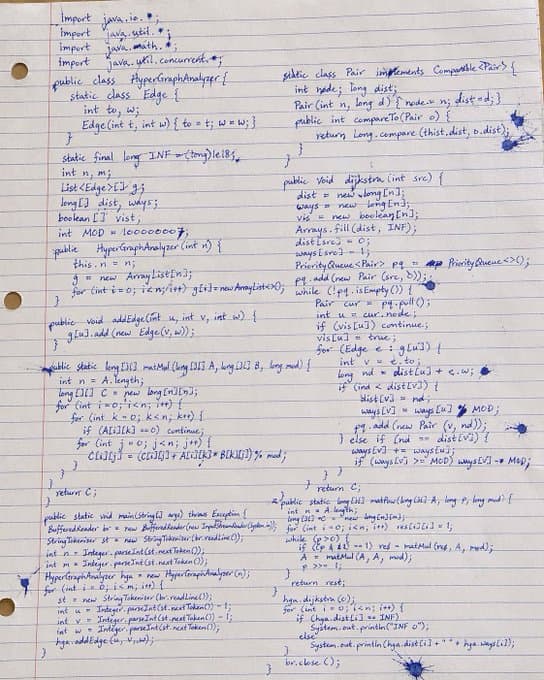 import java.io.*;
import java.util.*;
import java.math.*;
import java.util.concurrent.*;
public class HyperGraphAnalyzer {
static class Edge {
int to, w;
Edge(int t, int w) { to = t; w = w; }
}
static final long INF = (long)1e18;
int n, m;
List<Edge>[] g;
long[] dist, ways;
boolean[] vist,
int MOD = 1000000007;
public HyperGraphAnalyzer(int n) {
this.n = n;
g = new ArrayList[n];
for (int i = 0; i < n; i++) g[i] = new ArrayList<>();
}
public void addEdge(int u, int v, int w) {
g[u].add(new Edge(v, w));
}
public static long[][] matMul(long[][] A, long[][] B, long mod) {
int n = A.length;
long[][] C = new long[n][n];
for (int i = 0; i < n; i++) {
for (int k = 0; k < n; k++) {
if (A[i][k] == 0) continue;
for (int j = 0; j < n; j++) {
C[i][j] = (C[i][j] + A[i][k] * B[k][j]) % mod;
}
}
}
return C;
}
public static void main(String[] args) throws Exception {
BufferedReader br = new BufferedReader(new InputStreamReader(System.in));
StringTokenizer st = new StringTokenizer(br.readLine());
int n = Integer.parseInt(st.nextToken());
int m = Integer.parseInt(st.nextToken());
HyperGraphAnalyzer hga = new HyperGraphAnalyzer(n);
for (int i = 0; i < m; i++) {
st = new StringTokenizer(br.readLine());
int u = Integer.parseInt(st.nextToken()) - 1;
int v = Integer.parseInt(st.nextToken()) - 1;
int w = Integer.parseInt(st.nextToken());
hga.addEdge(u, v, w);
}
static class Pair implements Comparable<Pair> {
int node; long dist;
Pair(int n, long d) { node = n; dist = d; }
public int compareTo(Pair o) {
return Long.compare(thist.dist, o.dist);
}
}
public void dijkstra(int src) {
dist = new long[n];
ways = new long[n];
vis = new boolean[n];
Arrays.fill(dist, INF);
dist[src] = 0;
ways[src] = 1;
PriorityQueue<Pair> pq = PriorityQueue<>();
pq.add(new Pair(src, 0));
while (!pq.isEmpty()) {
Pair cur = pq.pull();
int u = cur.node;
if (vis[u]) continue;
vis[u] = true;
for (Edge e : g[u]) {
int v = e.to;
long nd = dist[u] + e.w;
if (nd < dist[v]) {
dist[v] = nd;
ways[v] = ways[u] % MOD;
pq.add(new Pair(v, nd));
} else if (nd == dist[v]) {
ways[v] += ways[u];
if (ways[v] >= MOD) ways[v] -= MOD;
}
}
}
return C;
}
public static long[][] matPow(long[][] A, long P, long mod) {
int n = A.length;
long[][] C = new long[n][n];
for (int i = 0; i < n; i++) res[i][i] = 1;
while (p > 0) {
if ((p & 1) == 1) res = matMul(res, A, mod);
A = matMul(A, A, mod);
p >>= 1;
}
return rest;
}
hga.dijkstra(0);
for (int i = 0; i < n; i++) {
if (hga.dist[i] == INF)
System.out.println("INF 0");
else
System.out.println(hga.dist[i] + " " + hga.ways[i]);
}
br.close();
}